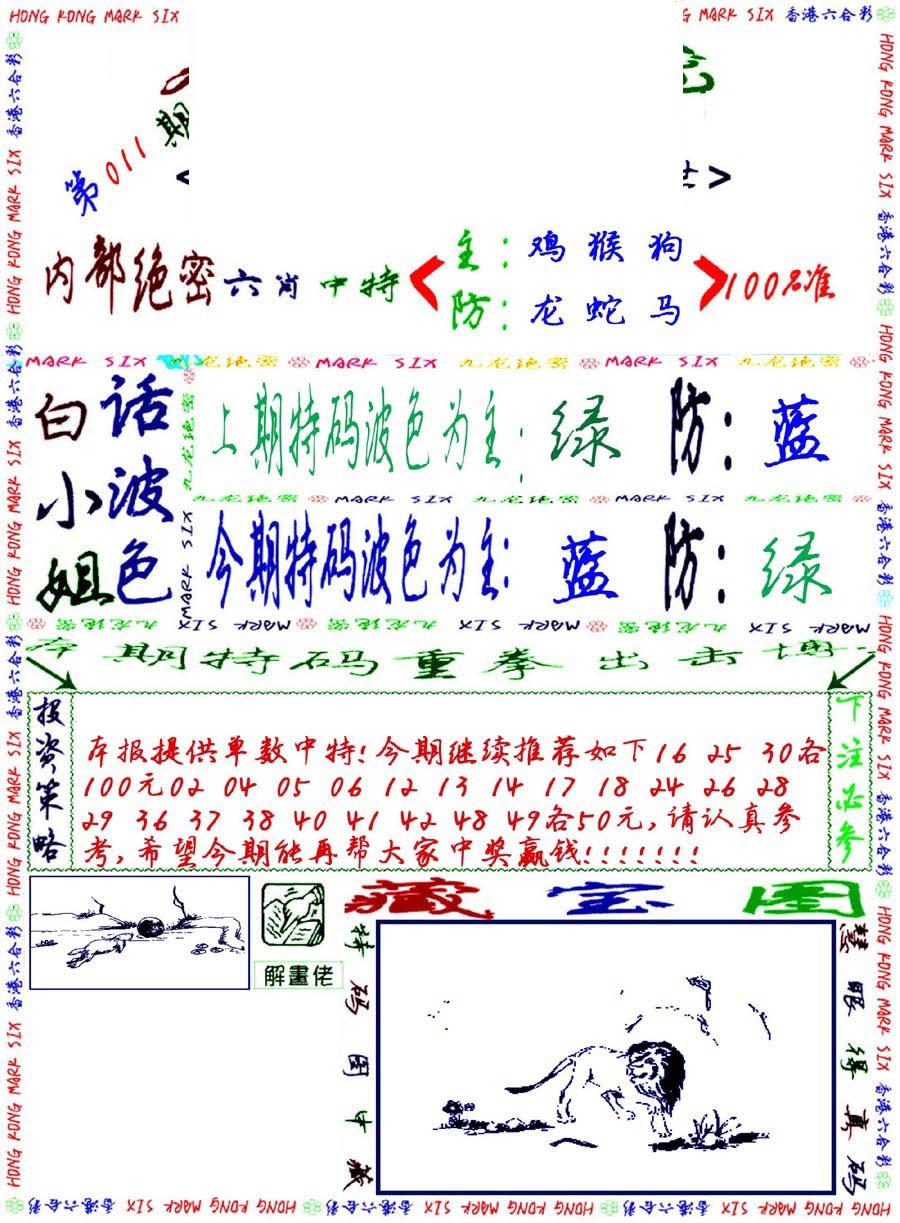 HONG KONG MARK SIX
G MARK SIX 香港六合彩
第011期
内部绝密六肖中特
主：鸡猴狗
防：龙蛇马
100%准
MARK SIX 九龙绝密 MARK SIX 九龙绝密 MARK SIX 九龙绝密
白小姐
话波色
上期特码波色为主：绿 防：蓝
九龙绝密 MARK SIX 九龙绝密 MARK SIX 九龙绝密
今期特码波色为主：蓝 防：绿
九龙绝密 MARK SIX 九龙绝密 MARK SIX 九龙绝密 MARK SIX
本期特码重拳出击博
投资策略
本报提供单数中特!今期继续推荐如下16 25 30各
100元02 04 05 06 12 13 14 17 18 24 26 28
29 36 37 38 40 41 42 48 49各50元,请认真参
考,希望今期能再帮大家中奖赢钱!!!!!!!
下注必参
解畫佬
藏宝图
特码图中藏
慧眼得真码
HONG KONG MARK SIX 香港六合彩 HONG KONG MARK SIX 香港六合彩 HONG KONG MARK SIX 香港六合彩